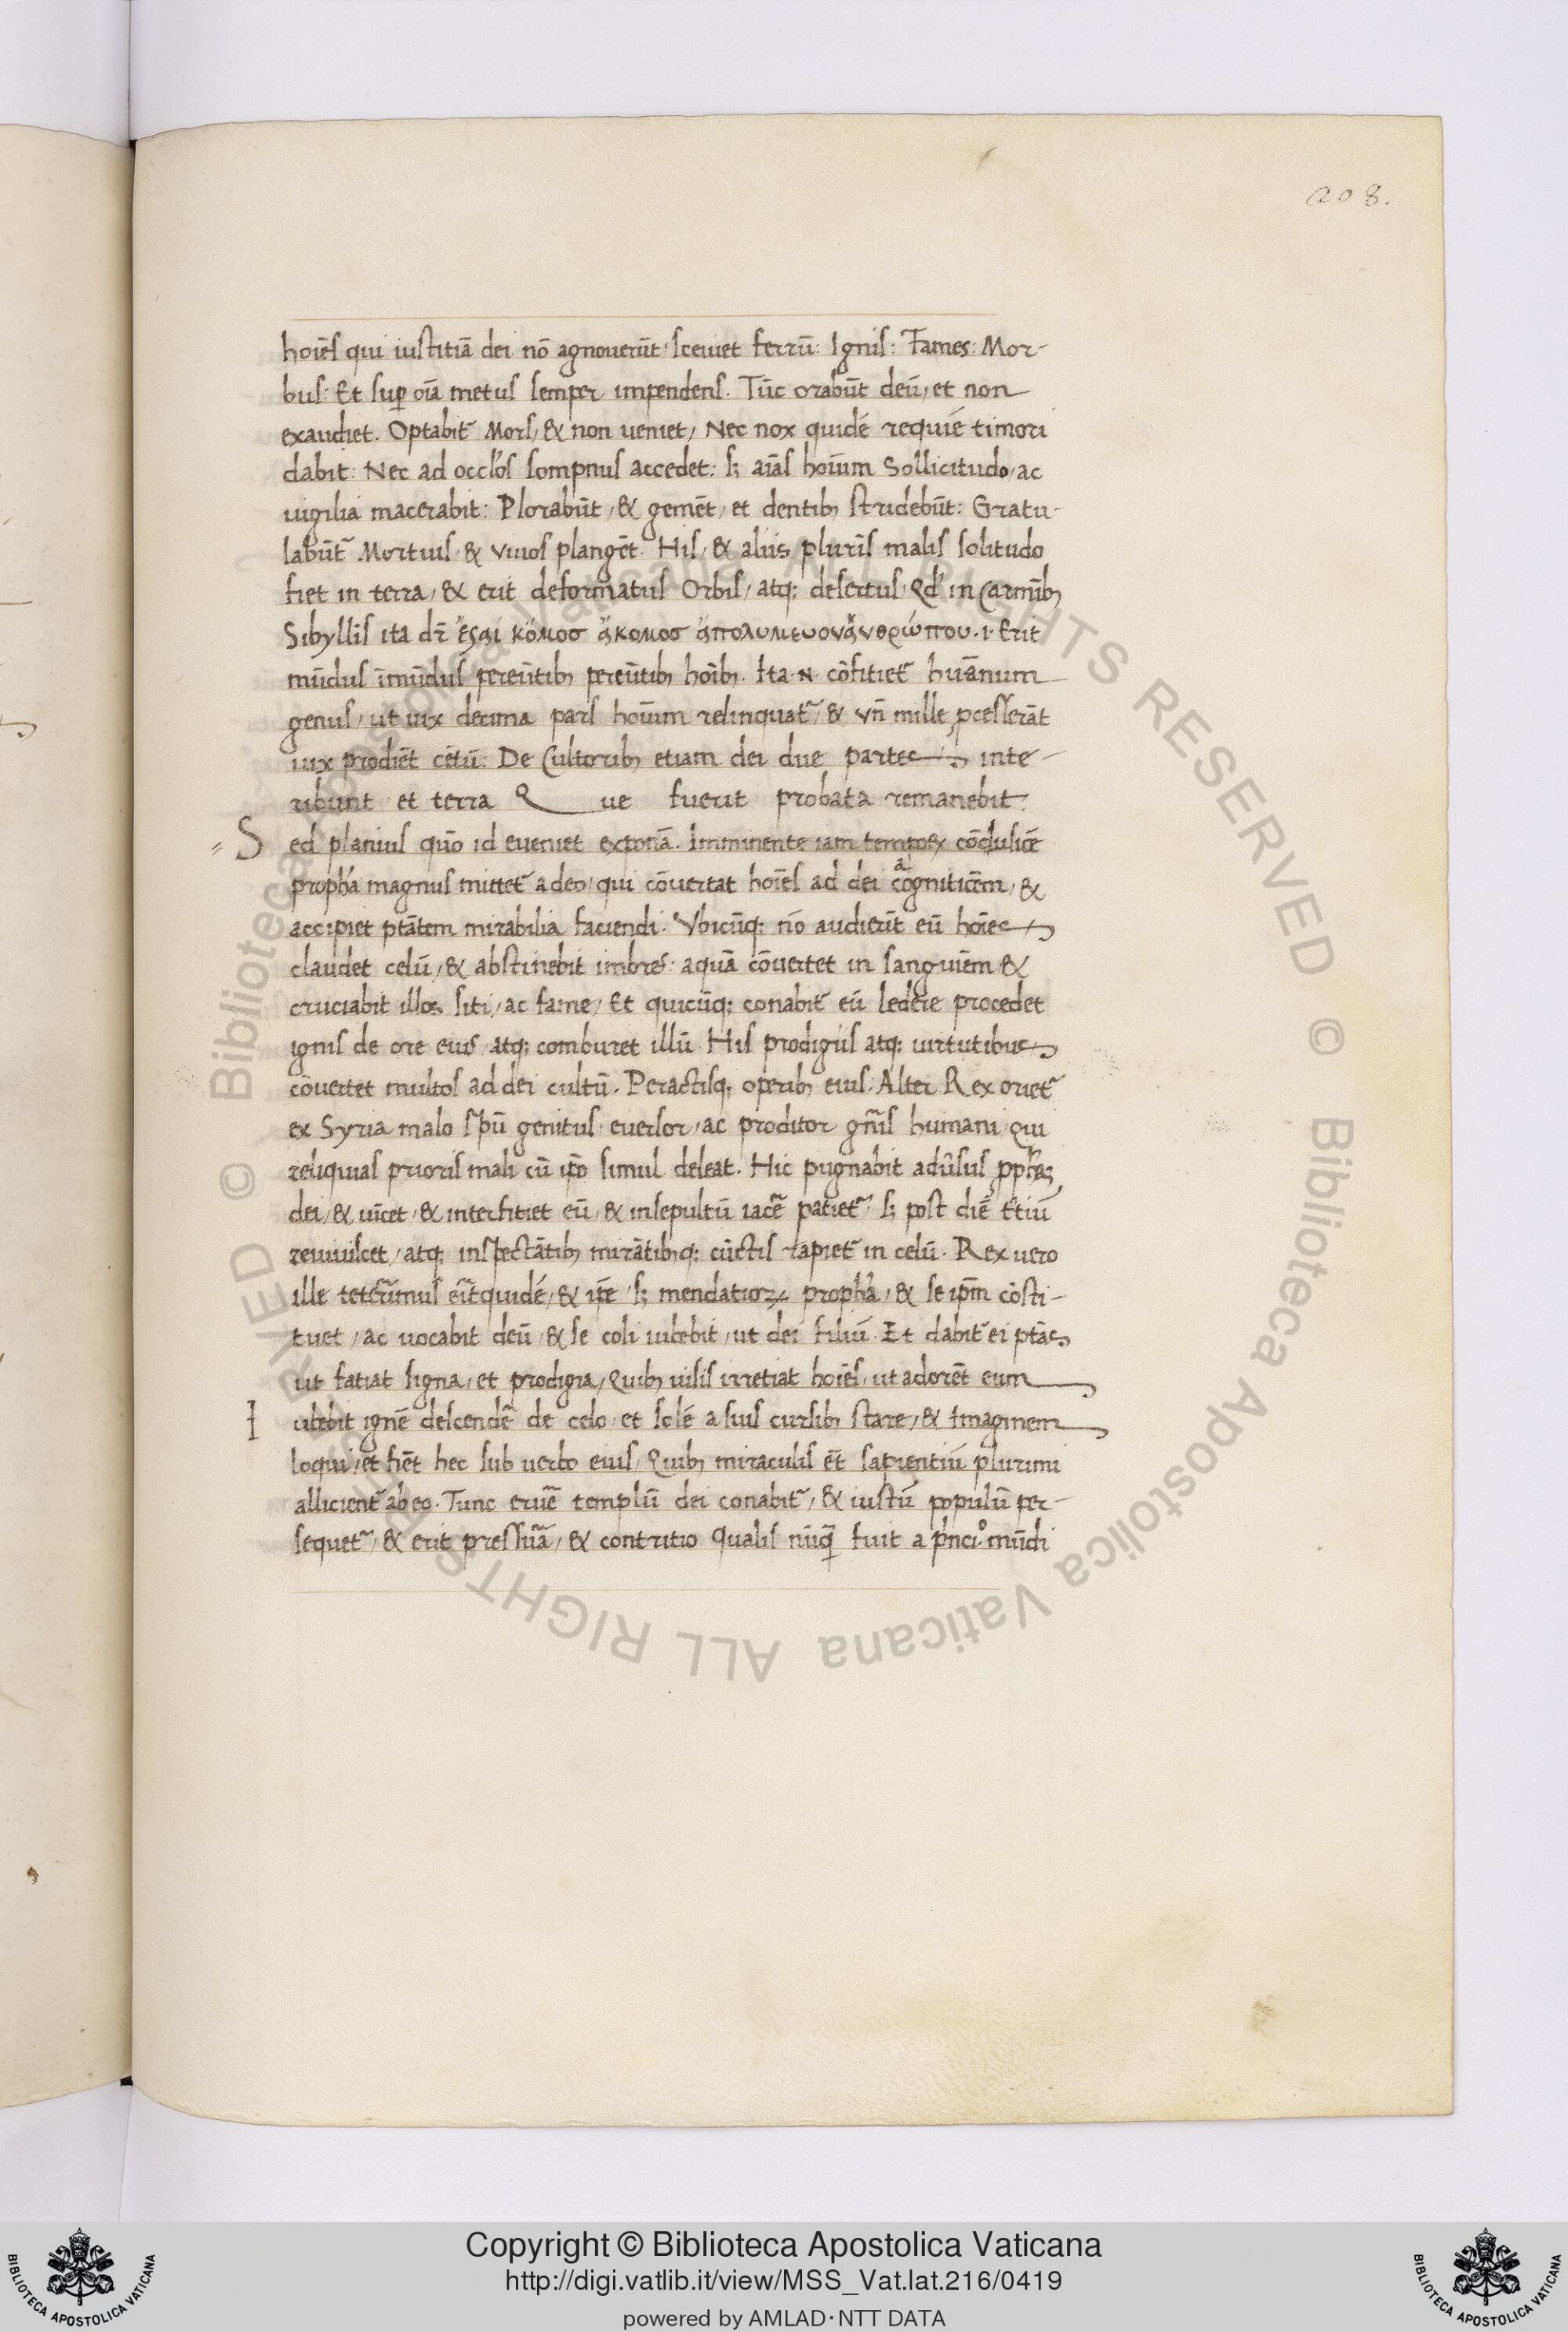 208.
hoiēs qui iustitiā dei nō agnouerūt sceuiet ferrū: Ignis: Fames: Mor-
bus: Et suꝑ oīa metus semper impendens. Tūc orabūt deū, et non
exaudiet. Optabit̃ Mors, & non ueniet, Nec nox quidē requiē timori
dabit: Nec ad occl'os sompnus accedet: s; aīas hoīum Sollicitudo, ac
uigilia macerabit: Plorabūt, & gemēt, et dentib; stridebūt: Gratu-
labūt̃ Mortuis & viuos plangēt. His, & aliis plurīs malis solitudo
fiet in terra, & erit deformatus Orbis, atq; desertus, Qd' in Carmīb;
Sibyllis ita dr̄ ἔςαί κόμοσ ἄκομοσ ἀπολυμευονἄνθρώπου. i. Erit
mūdus īmūdus pereūtib; pereūtib; hoīb;. Ita .N. cōfitiet̃ huānum
genus, ut uix decima pars hoīum relinquat̃, & vn̄ mille ꝓcesserāt
uix prodiēt cētū: De Cultorib; etiam dei due partes inte-
ribunt et terra Que fuerit probata remanebit:
Sed planius quō id eueniet exponā. Imminente iam tempoꝝ cōclusiōē
proph'a magnus mittet̃ a deo, qui cōuertat hoiēs ad dei cogniticēm, &
accipiet ptātem mirabilia faciendi. Vbicūq; nō audierīt eū hoīes
claudet celū, & abstinebit imbres: aquā cōuertet in sanguīem &
cruciabit illos siti, ac fame, Et quicūq; conabit̃ eū ledere procedet
ignis de ore eius atq; comburet illū. His prodigiis atq; uirtutibus
cōuertet multos ad dei cultū. Peractisq; operib; eius. Alter Rex oriet̃
ex Syria malo sp̄ū genitus euersor, ac proditor gn̄is humani qui
reliquias prioris mali cū ip̄o simul deleat. Hic pugnabit adūsus ꝓph'as
dei, & uīcet, & interfitiet eū, & insepultū iacē patiet̃, s; post diē t̄tiū
reuiuiscet, atq; inspectātib; mirātib;q; cūctis rapiet̃ in celū. Rex uero
ille teterīmus erit quidē, & ip̄e s; mendatioꝝ proph'a, & se ip̄m cōsti-
tuet, ac uocabit deū, & se coli iubebit, ut dei filiū. Et dabit̃ ei ptās
ut fatiat signa, et prodigia, Quib; uisis irretiat hoiēs, ut adorēt eum
Iubebit ignē descendē de celo, et solē a suis cursib; stare, & Imaginem
loqui, et fiēt hec sub uerbo eius, Quib; miraculis ēt sapientiū plurimi
allicient̃ ab eo. Tunc eruē templū dei conabit̃, & iustū populū per-
sequet̃, & erit pressūa, & contritio Qualis nūq̄ fuit a p'ncio mūdi
Copyright © Biblioteca Apostolica Vaticana
http://digi.vatlib.it/view/MSS_Vat.lat.216/0419
powered by AMLAD·NTT DATA
BIBLIOTECA APOSTOLICA VATICANA
BIBLIOTECA APOSTOLICA VATICANA
© Biblioteca Apostolica Vaticana ALL RIGHTS RESERVED
© Biblioteca Apostolica Vaticana ALL RIGHTS RESERVED